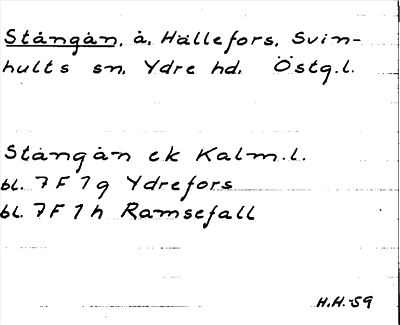 Stångån, å, Hällefors, Svin-
hults sn, Ydre hd. Östg.l.
Stångån ek Kalm.l.
bl. 7 F 7 g Ydrefors
bl. 7 F 7 h Ramsefall
H.H.-59